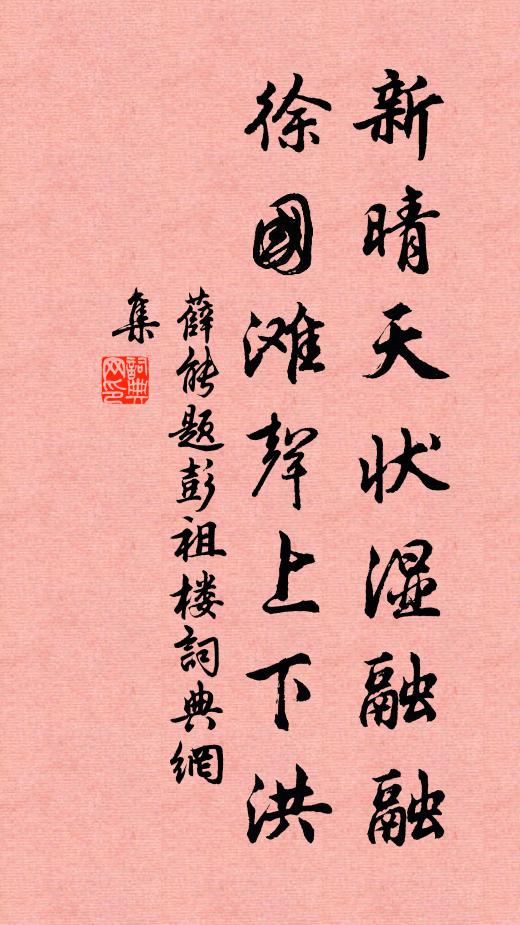 新晴天状湿融融
徐國滩聲上下洪
薛能题彭祖楼詞典網
集
詞典
网印